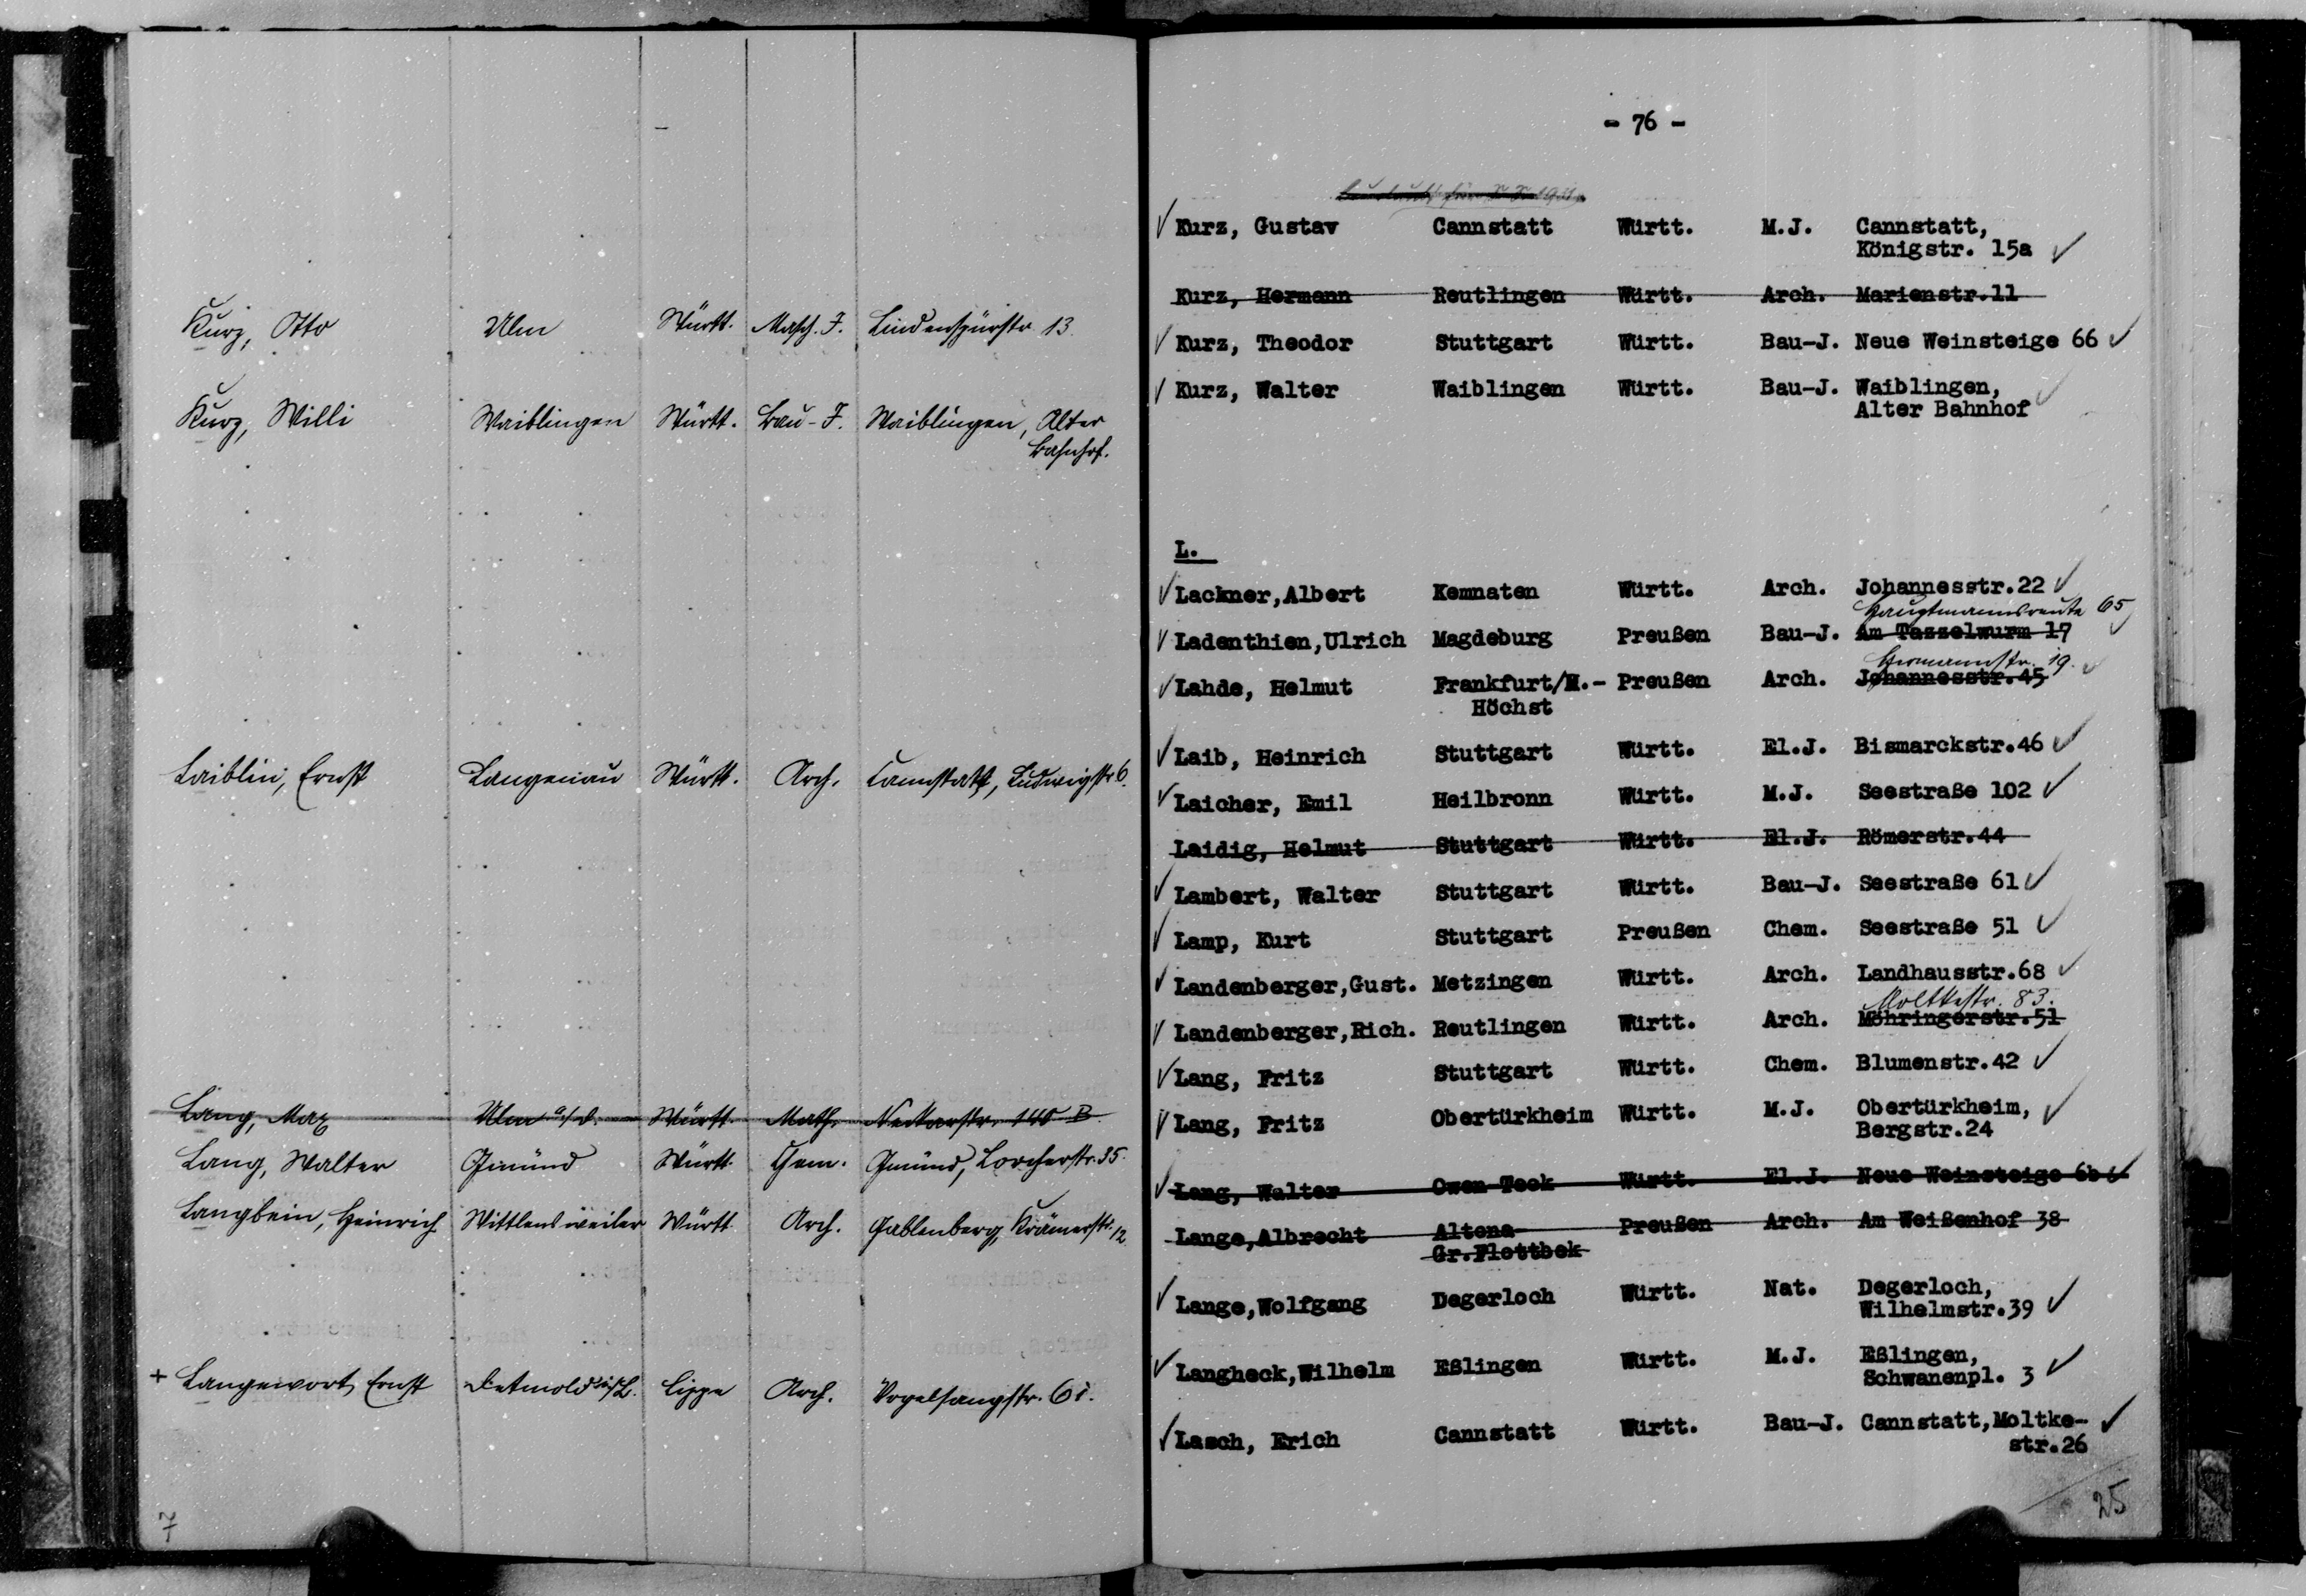 Kurz, Otto Ulm Württ. Masch. J. Lindenspürstr 13.
Kurz, Willi Waiblingen Württ. Bau-J. Waiblingen, Alter
Bahnhof.
Laiblin, Ernst Langenau Württ. Arch. Cannstatt, Ludwigstr 6.
Lang, Max Ulm a/D. Württ. Math. Neckarstr. 140 B.
Lang, Walter Gmünd Württ. Chem. Gmünd, Lorcherstr. 35.
Langbein, Heinrich Wittlensweiler Württ. Arch. Gablenberg, Krämerstr. 12
+ Langewort, Ernst Detmold i/L. Lippe Arch. Vogelsangstr.
7
- 76 -
✓ Kurz, Gustav Cannstatt Württ. M.J. Cannstatt,
Königstr. 15a ✓
Kurz, Hermann Reutlingen Württ. Arch. Marienstr.11
✓ Kurz, Theodor Stuttgart Württ. Bau-J. Neue Weinsteige 66 ✓
✓ Kurz, Walter Waiblingen Württ. Bau-J. Waiblingen,
Alter Bahnhof ✓
L.
✓ Lackner,Albert Kemnaten Württ. Arch. Johannesstr.22 ✓
Hauptmannsreute 65
✓ Ladenthien,Ulrich Magdeburg Preußen Bau-J. Am Tazzelwurm 17 ✓
19.
✓ Lahde, Helmut Frankfurt/M.- Preußen Arch. Johannesstr.45 ✓
Höchst
✓ Laib, Heinrich Stuttgart Württ. El.J. Bismarckstr.46 ✓
✓ Laicher, Emil Heilbronn Württ. M.J. Seestraße 102 ✓
Laidig, Helmut Stuttgart Württ. El.J. Römerstr.44
✓ Lambert, Walter Stuttgart Württ. Bau-J. Seestraße 61 ✓
✓ Lamp, Kurt Stuttgart Preußen Chem. Seestraße 51 ✓
✓ Landenberger,Gust. Metzingen Württ. Arch. Landhausstr.68 ✓
Moltkestr. 83.
✓ Landenberger,Rich. Reutlingen Württ. Arch. Möhringerstr.51
✓ Lang, Fritz Stuttgart Württ. Chem. Blumenstr.42 ✓
✓ Lang, Fritz Obertürkheim Württ. M.J. Obertürkheim, ✓
Bergstr.24
✓ Lang, Walter Owen-Teck Württ. El.J. Neue Weinsteige 6b ✓
Lange,Albrecht Altona- Preußen Arch. Am Weißenhof 38
Gr.Flottbek
✓ Lange,Wolfgang Degerloch Württ. Nat. Degerloch,
Wilhelmstr.39 ✓
✓ Langheck,Wilhelm Eßlingen Württ. M.J. Eßlingen,
Schwanenpl. 3 ✓
✓ Lasch, Erich Cannstatt Württ. Bau-J. Cannstatt,Moltke- ✓
str.26
25